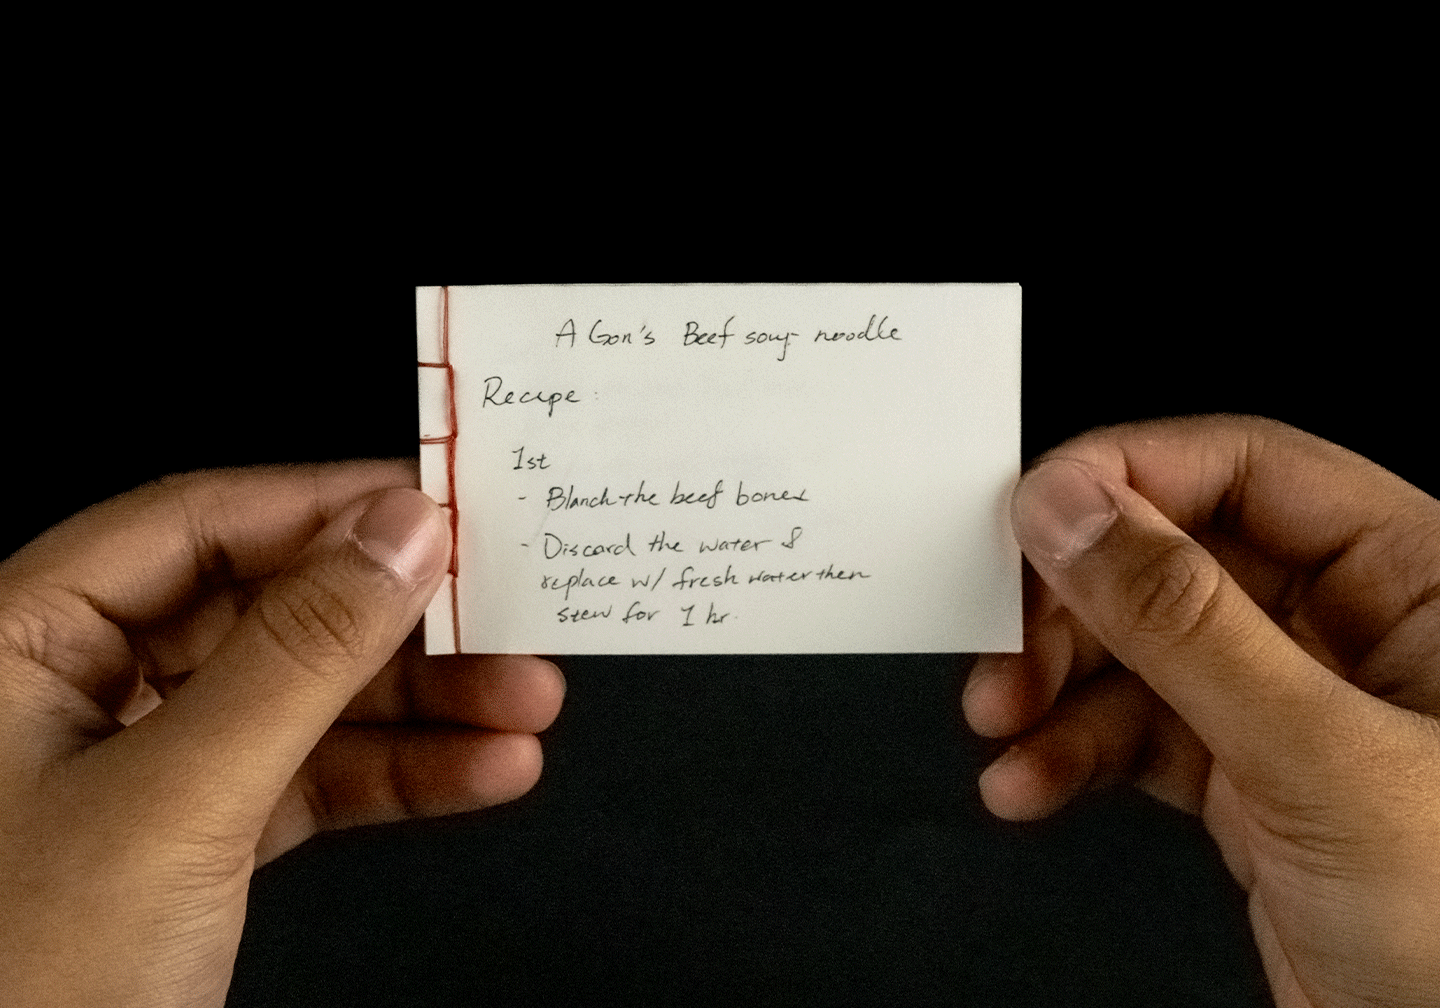 A Gon's Beef soup noodle
Recipe:
1st
- Blanch the beef bones
- Discard the water &
replace w/ fresh water then
stew for 1 hr.